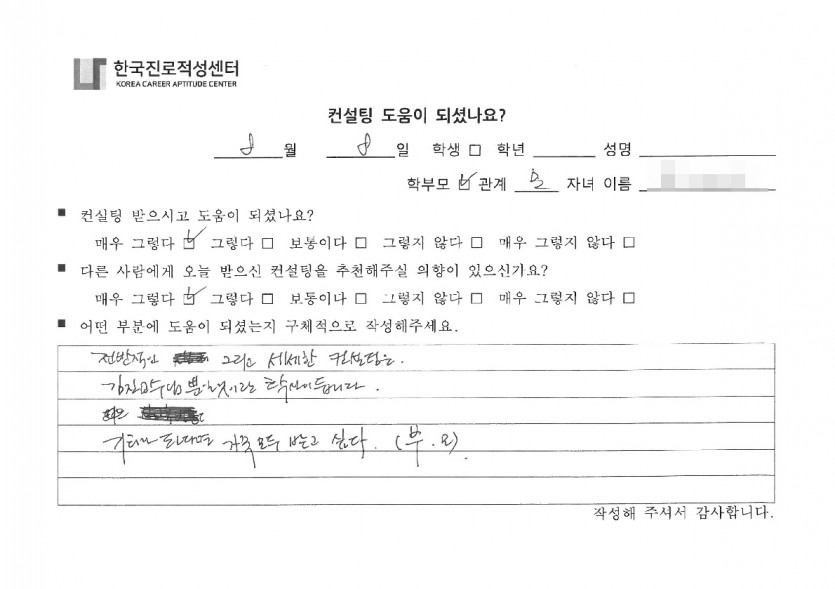 한국진로적성센터
KOREA CAREER APTITUDE CENTER
컨설팅 도움이 되셨나요?
8월 8일 학생 □ 학년 성명
학부모 ☑ 관계 모 자녀 이름
■ 컨실팅 받으시고 도움이 되셨나요?
매우 그렇다 ☑ 그렇다 □ 보통이다 □ 그렇지 않다 □ 매우 그렇지 않다 □
■ 다른 사람에게 오늘 받으신 컨설팅을 추천해주실 의향이 있으신가요?
매우 그렇다 ☑ 그렇다 □ 보통이다 □ 그렇지 않다 □ 매우 그렇지 않다 □
■ 어떤 부분에 도움이 되셨는지 구체적으로 작성해주세요.
전반적인 그리고 세세한 컨설팅은.
김진교수님 뿐일것이라는 듭니다.
가족 모두 받고 싶다. (부.모).
작성해 주셔서 감사합니다.